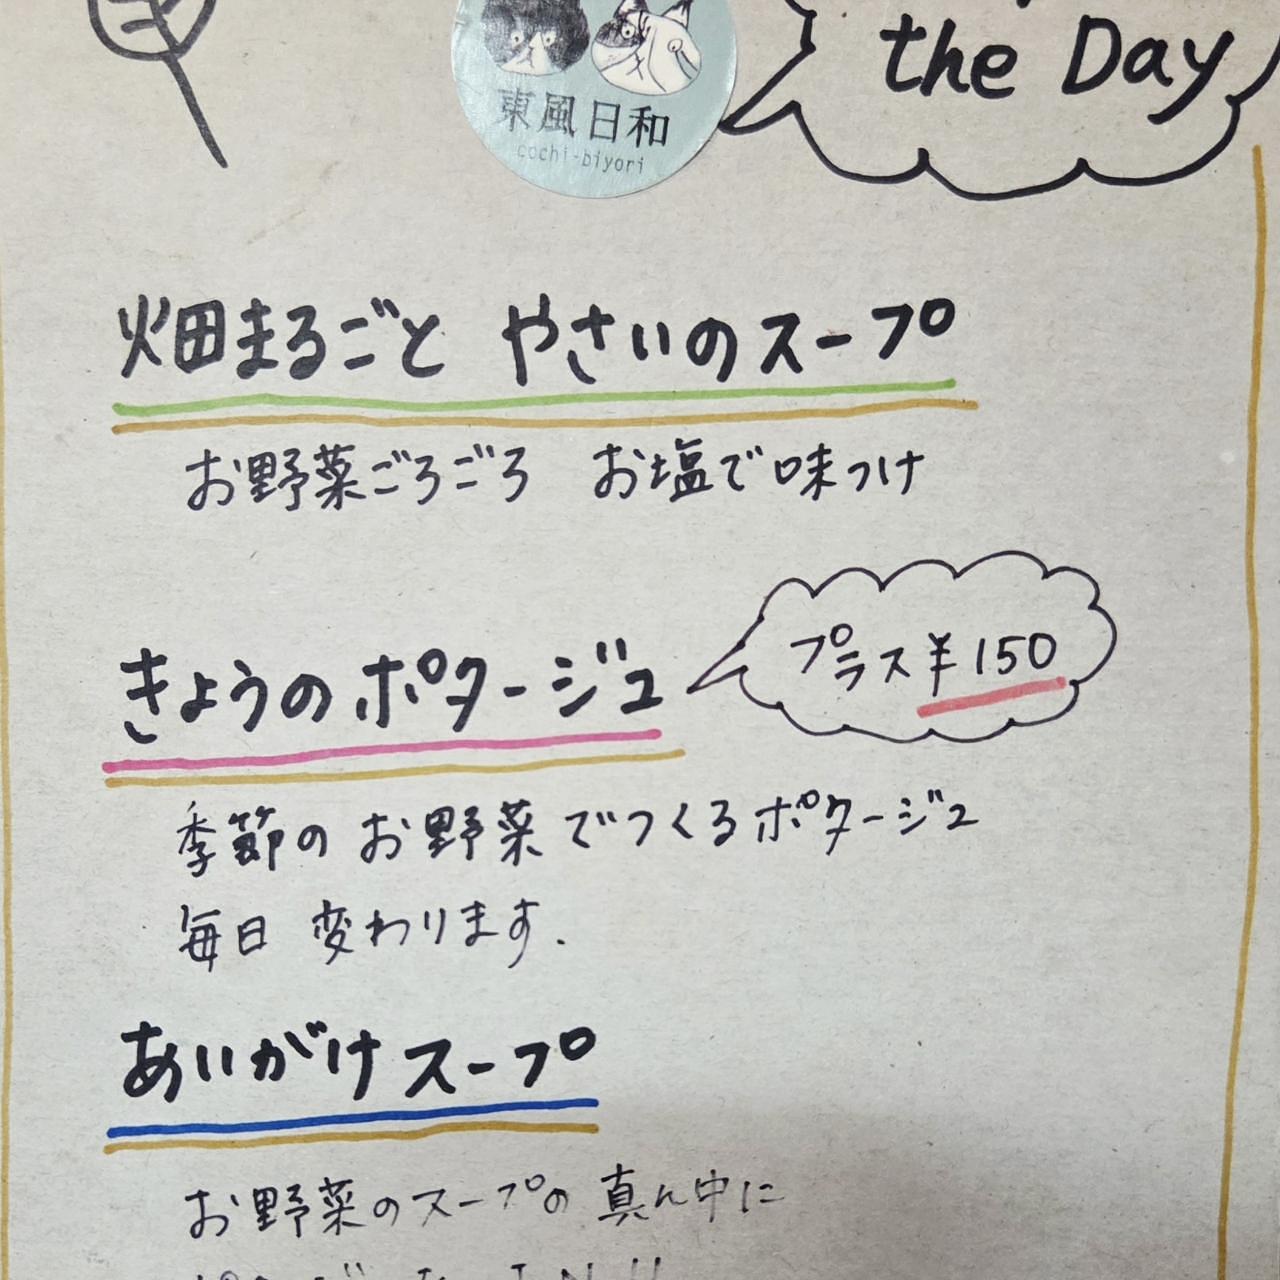 the Day
東風日和
cochi-biyori
畑まるごと やさいのスープ
お野菜ごろごろ お塩で味つけ
きょうのポタージュ
プラス¥150
季節のお野菜でつくるポタージュ
毎日 変わります.
あいがけスープ
お野菜のスープの真ん中に